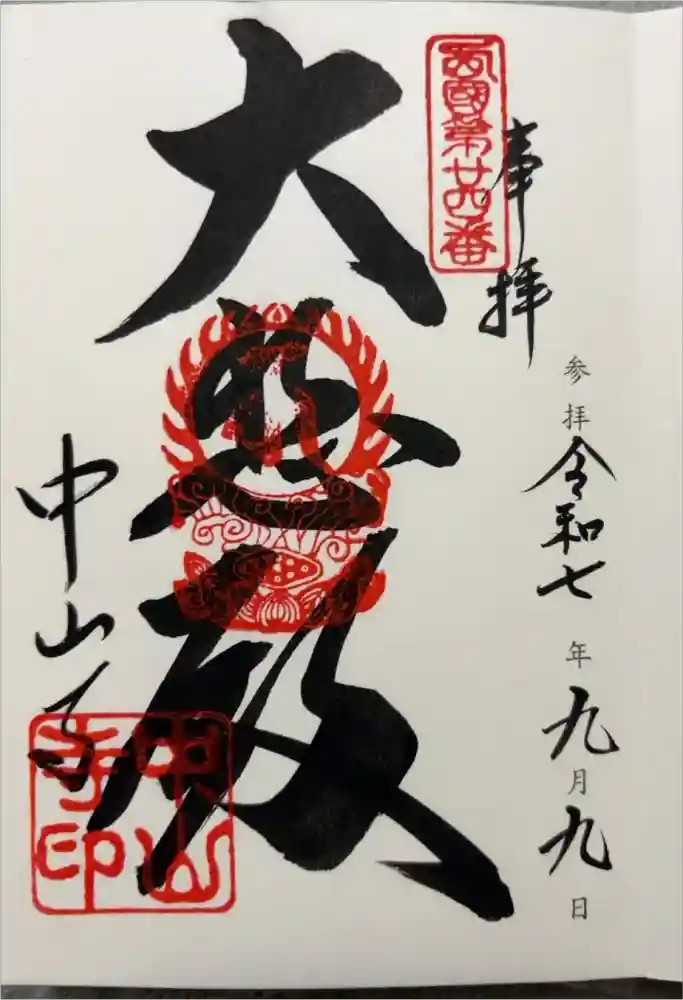 参拝 令和七年九月九日
奉拝
西國第廿四番
大悲殿
中山寺
中山寺印